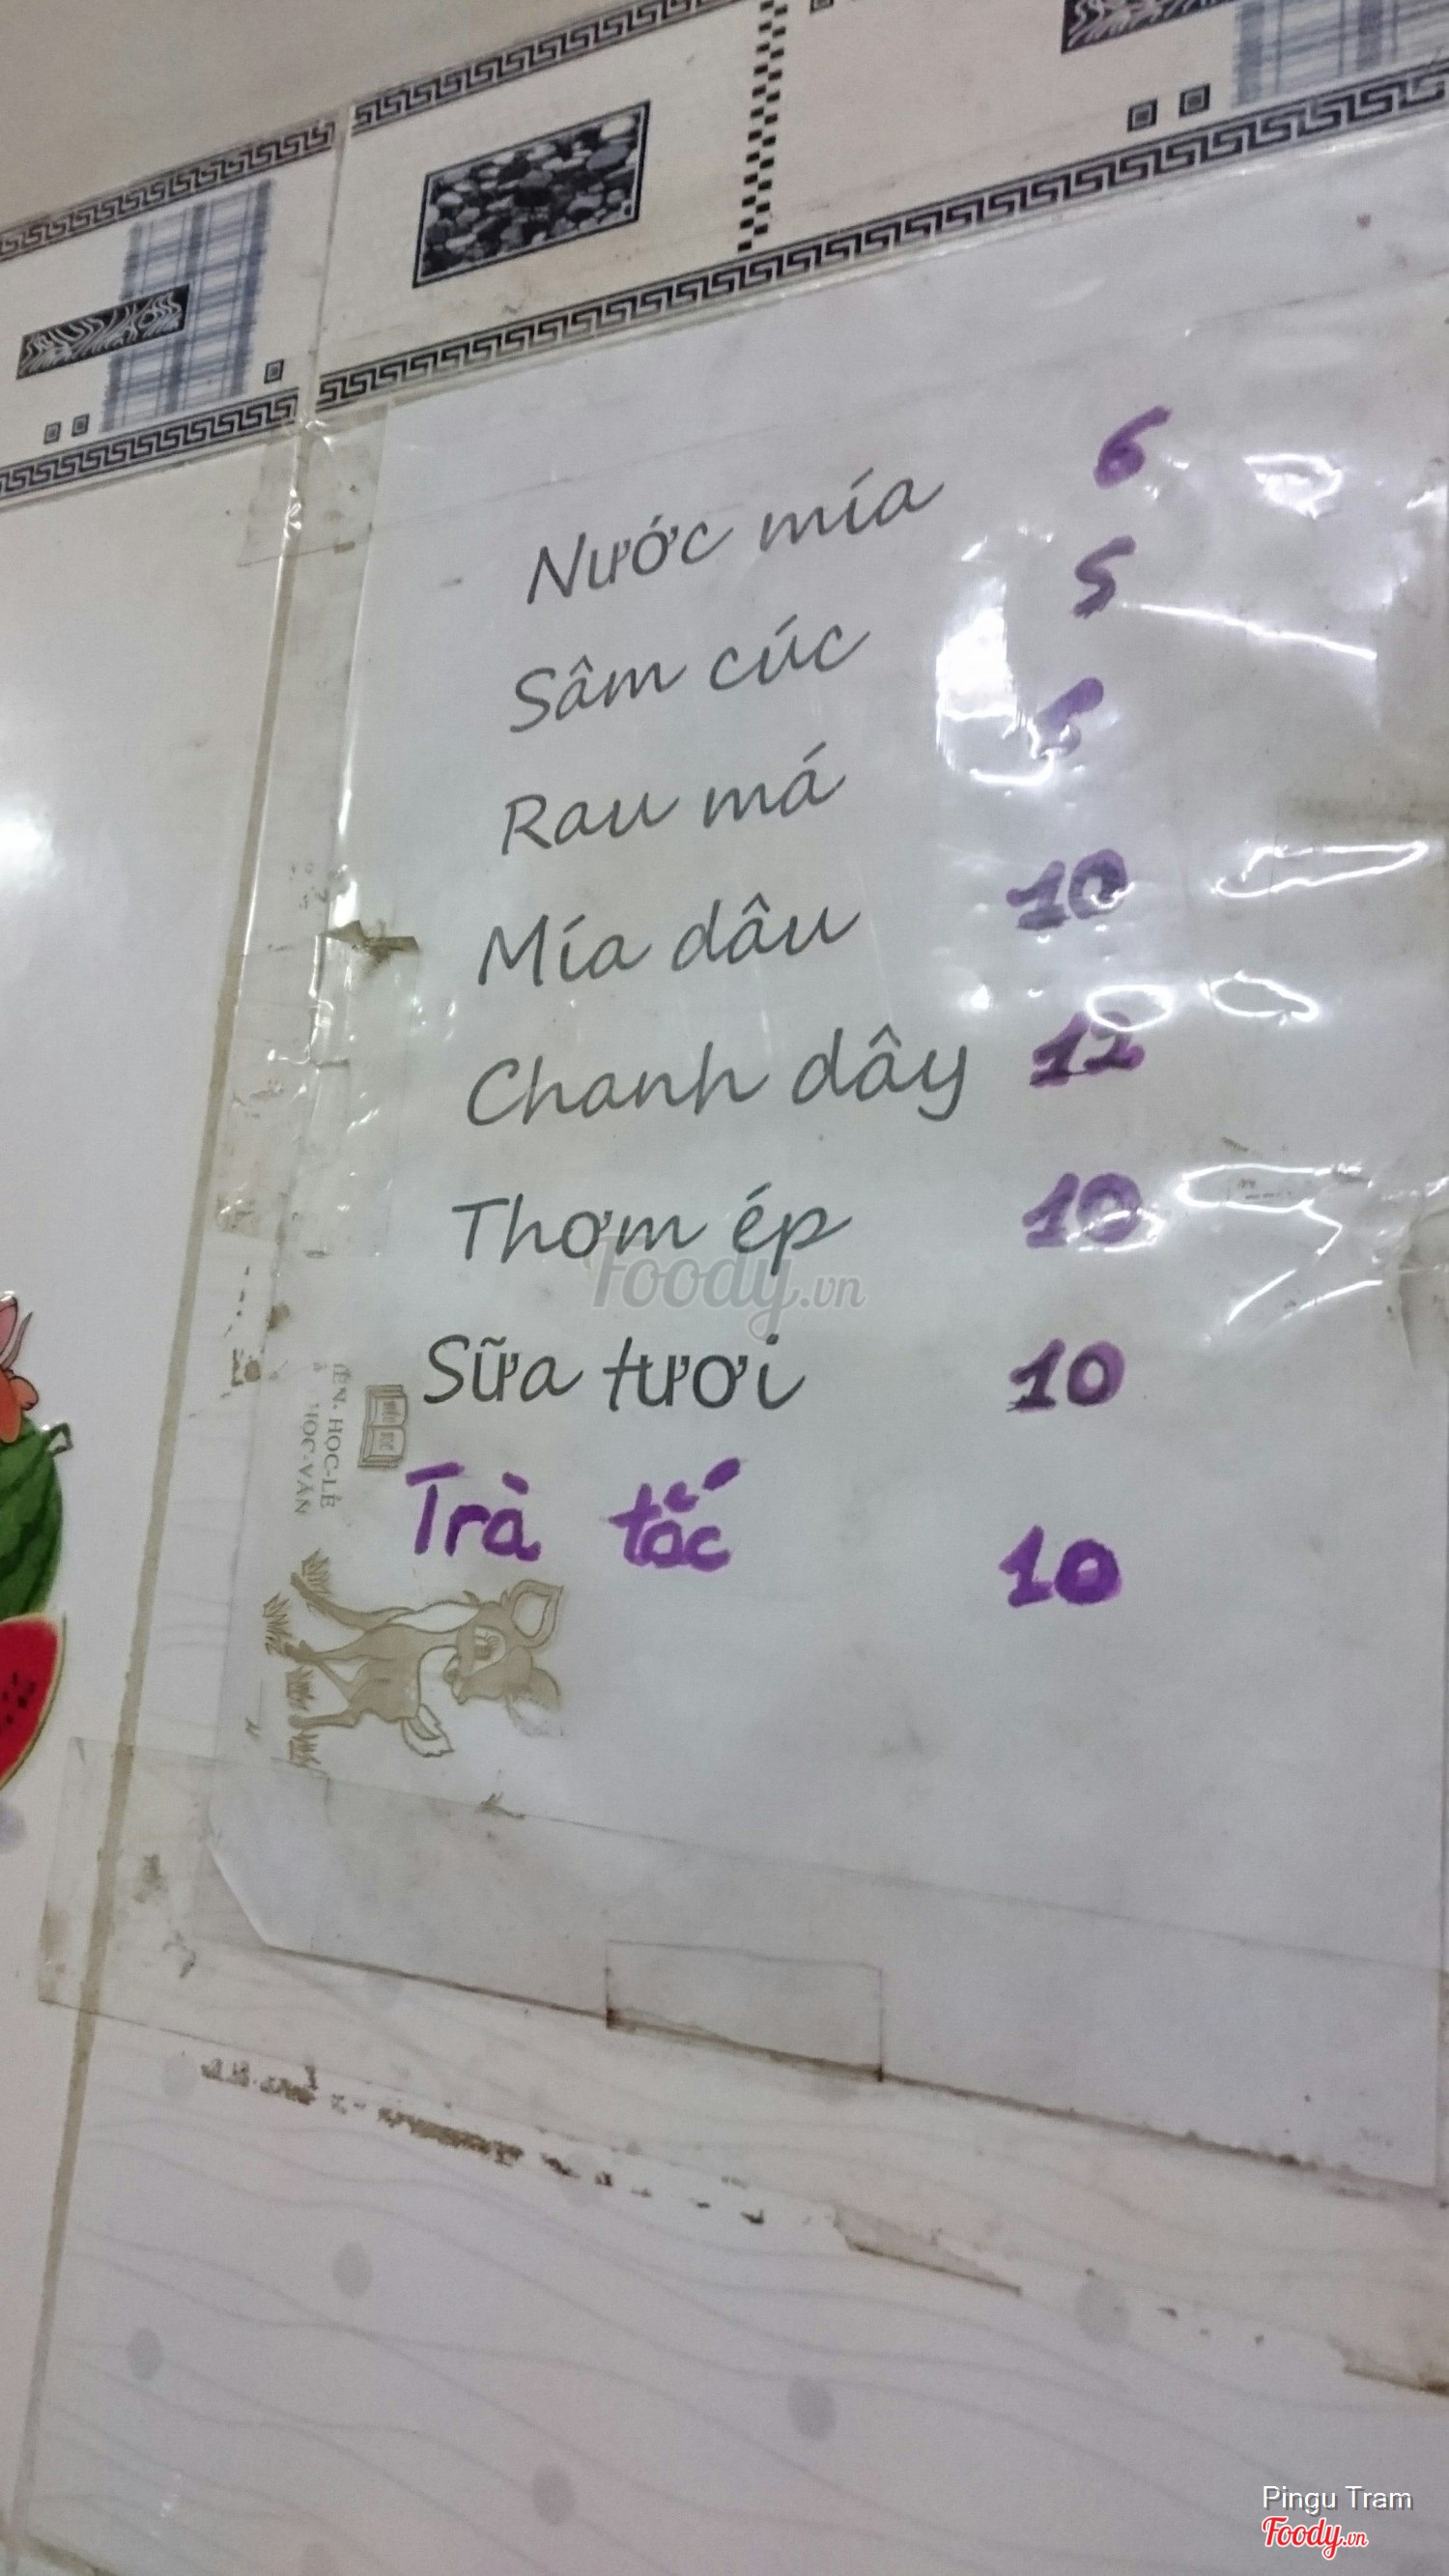 Nước mía 6
Sâm cúc 5
Rau má
Mía dâu 10
Chanh dây 12
Thơm ép 10
Foody.vn
Sữa tươi 10
Trà tắc 10
HỌC-LỄ
HỌC-VĂN
Pingu Tram
Foody.vn